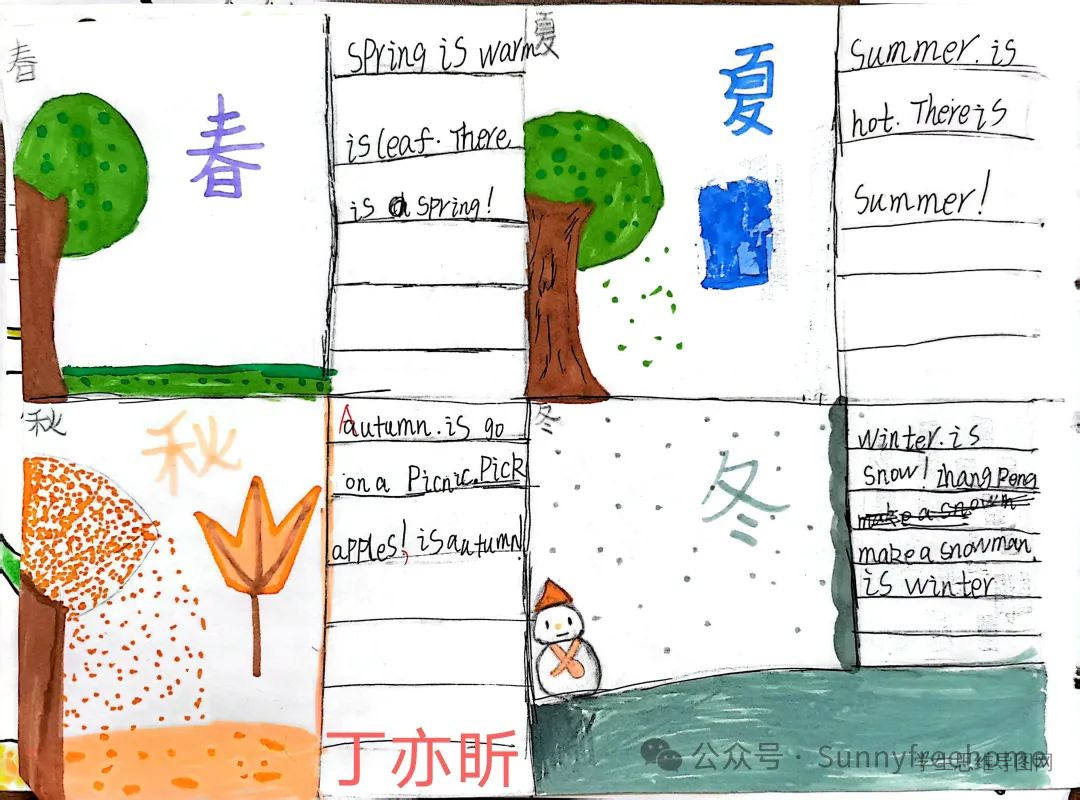 春
春
spring is warm
is leaf. There
is a spring!
夏
夏
Summer. is
hot. There is
Summer!
秋
秋
Autumn. is go
on a Picnic. Pick
apples! is autumn
冬
冬
winter. is
snow! zhang Peng
make a snow
make a snowman.
is winter
丁亦昕
公众号 · Sunnyfreehome